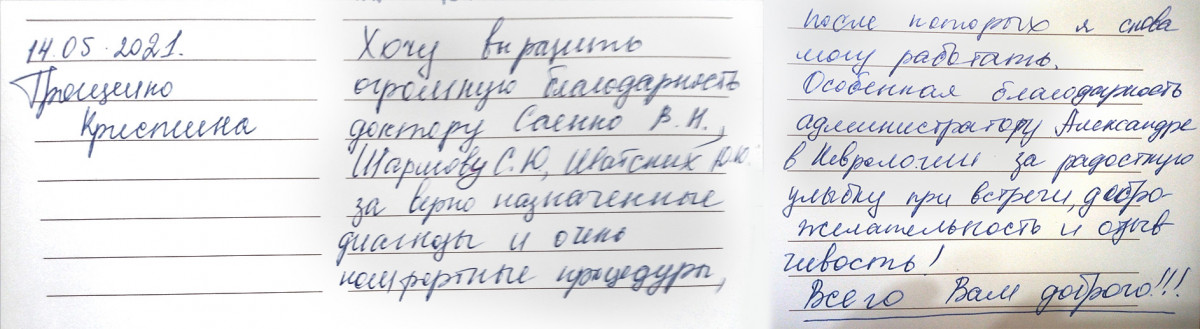 14.05.2021.
Кристина
Хочу выразить
огромную благодарность
доктору Саенко В.Н.,
С.Ю, Ю.Ю.
за верно назначенные
диагнозы и очень
комфортные процедуры,
после которых я снова
могу работать.
Особенная благодарность
администратору Александре
в Неврологии за радостную
улыбку при встречи, добро
желательность и отзыв
чивость!
Всего Вам доброго!!!